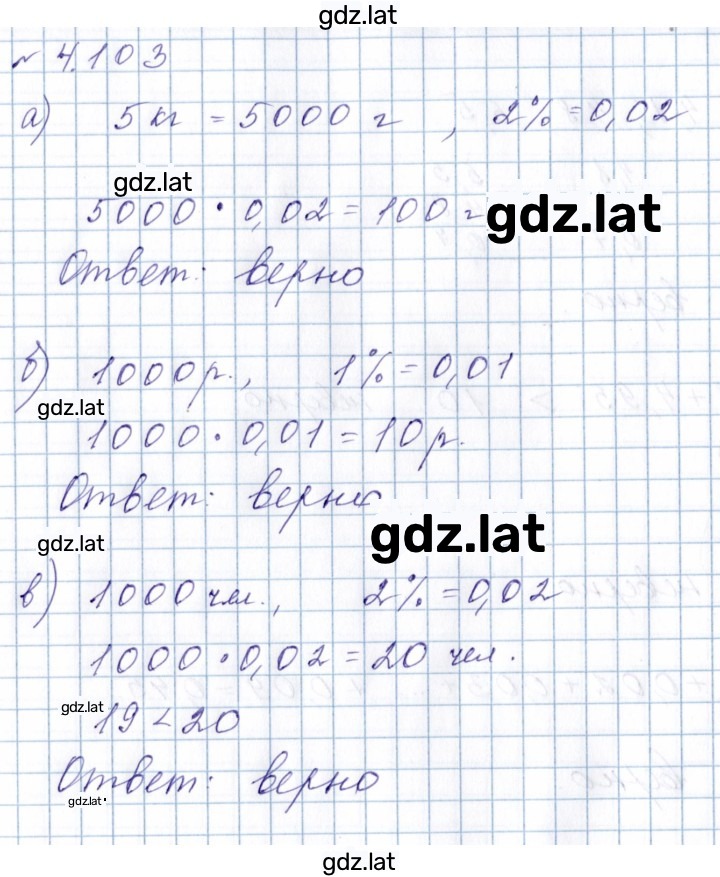 gdz.lat
№ 4.103
а) 5 кг = 5000 г , 2% = 0,02
gdz.lat
5000 · 0,02 = 100 г gdz.lat
Ответ: верно
б) 1000 р., 1% = 0,01
gdz.lat
1000 · 0,01 = 10 р.
Ответ: верно
gdz.lat gdz.lat
в) 1000 чел., 2% = 0,02
1000 · 0,02 = 20 чел.
gdz.lat
19 < 20
Ответ: верно
gdz.lat
gdz.lat